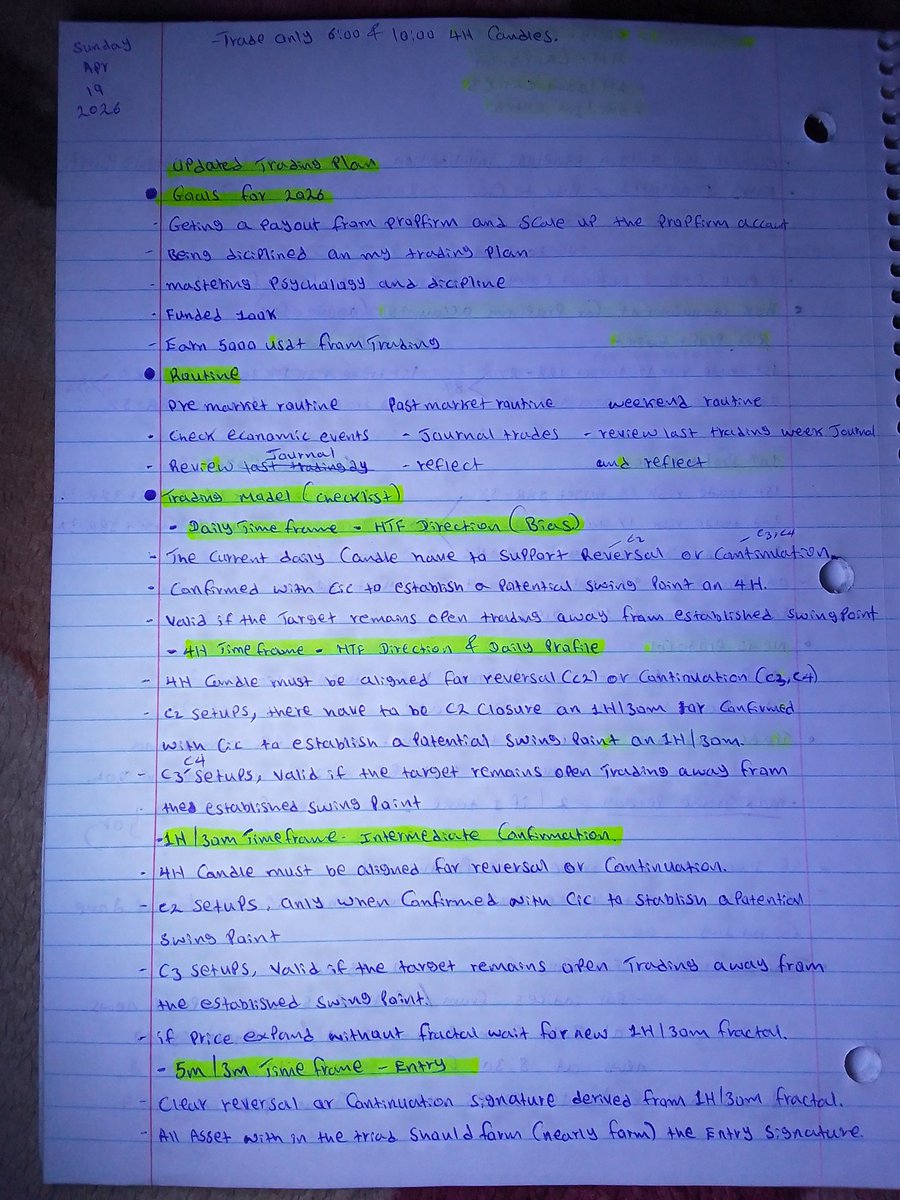 -Trade only 6:00 & 10:00 4H Candles.
Sunday
Apr
19
2026
Updated Trading Plan
Goals for 2026
- Geting a payout from propfirm and Scale up the Propfirm accaut
- Being diciplined on my trading plan
- mastering Psychology and dicipline
- Funded 100K
- Earn 5000 usdt from Trading
Routine
Pre market routine Post market routine weekend routine
• Check economic events - Journal trades - review last trading week Journal
- Review last Journal - reflect and reflect
Trading Model (checklist)
- Daily Time frame - HTF Direction (Bias)
C2 C3, C4
- The Current daily Candle have to support Reversal or Continuation.
- Confirmed with Cic to establish a Potential swing Point on 4H.
- Valid if the Target remains open trading away from established SwingPoint
- 4H Timeframe - HTF Direction & Daily Profile
- 4H Candle must be aligned for reversal (C2) or Continuation (C3, C4)
- C2 setups, there have to be C2 Closure on 1H/30m for Confirmed
with Cic to establish a Potential Swing Point on 1H/30m.
C4
- C3 setups, Valid if the target remains open Trading away from
the established swing Point
- 1H/30m Timeframe - Intermediate Confirmation.
- 4H Candle must be aligned for reversal or Continuation.
- C2 setups, only when Confirmed with Cic to stablish a Potential
Swing Point
- C3 setups, Valid if the target remains open Trading away from
the established Swing Point.
- if Price expand without fractal wait for new 1H/30m fractal.
- 5m/3m Time frame - Entry
- Clear reversal or Continuation Signature derived from 1H/30m fractal.
- All Asset with in the triad Should form (nearly form) the Entry Signature.